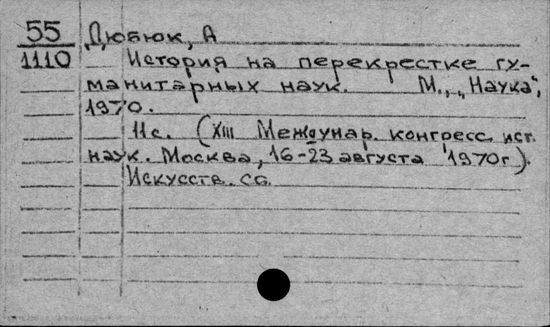 55 Дюбюк, А
1110 История на перекрестке гу-
манитарных наук. М., „Наука",
1970.
11с. (XIII Междунар. конгресс ист.
наук. Москва, 16-23 августа 1970г).
Искусств. сб.